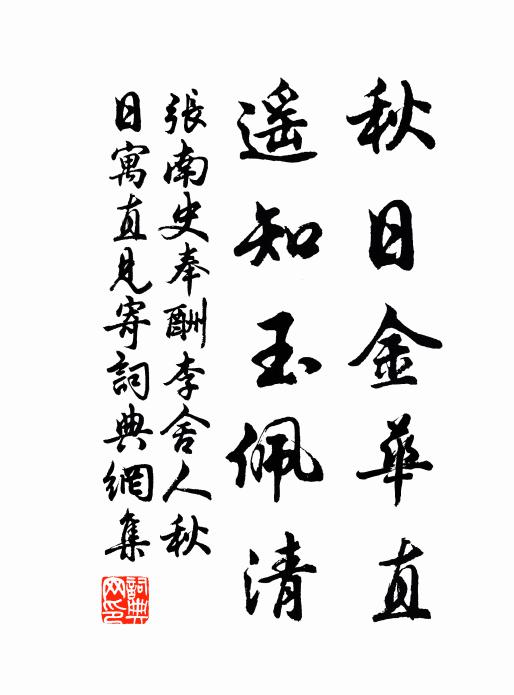 秋日金華直
遥知玉佩清
張南史奉酬李舍人秋
日寓直見寄詞典網集
詞典网印